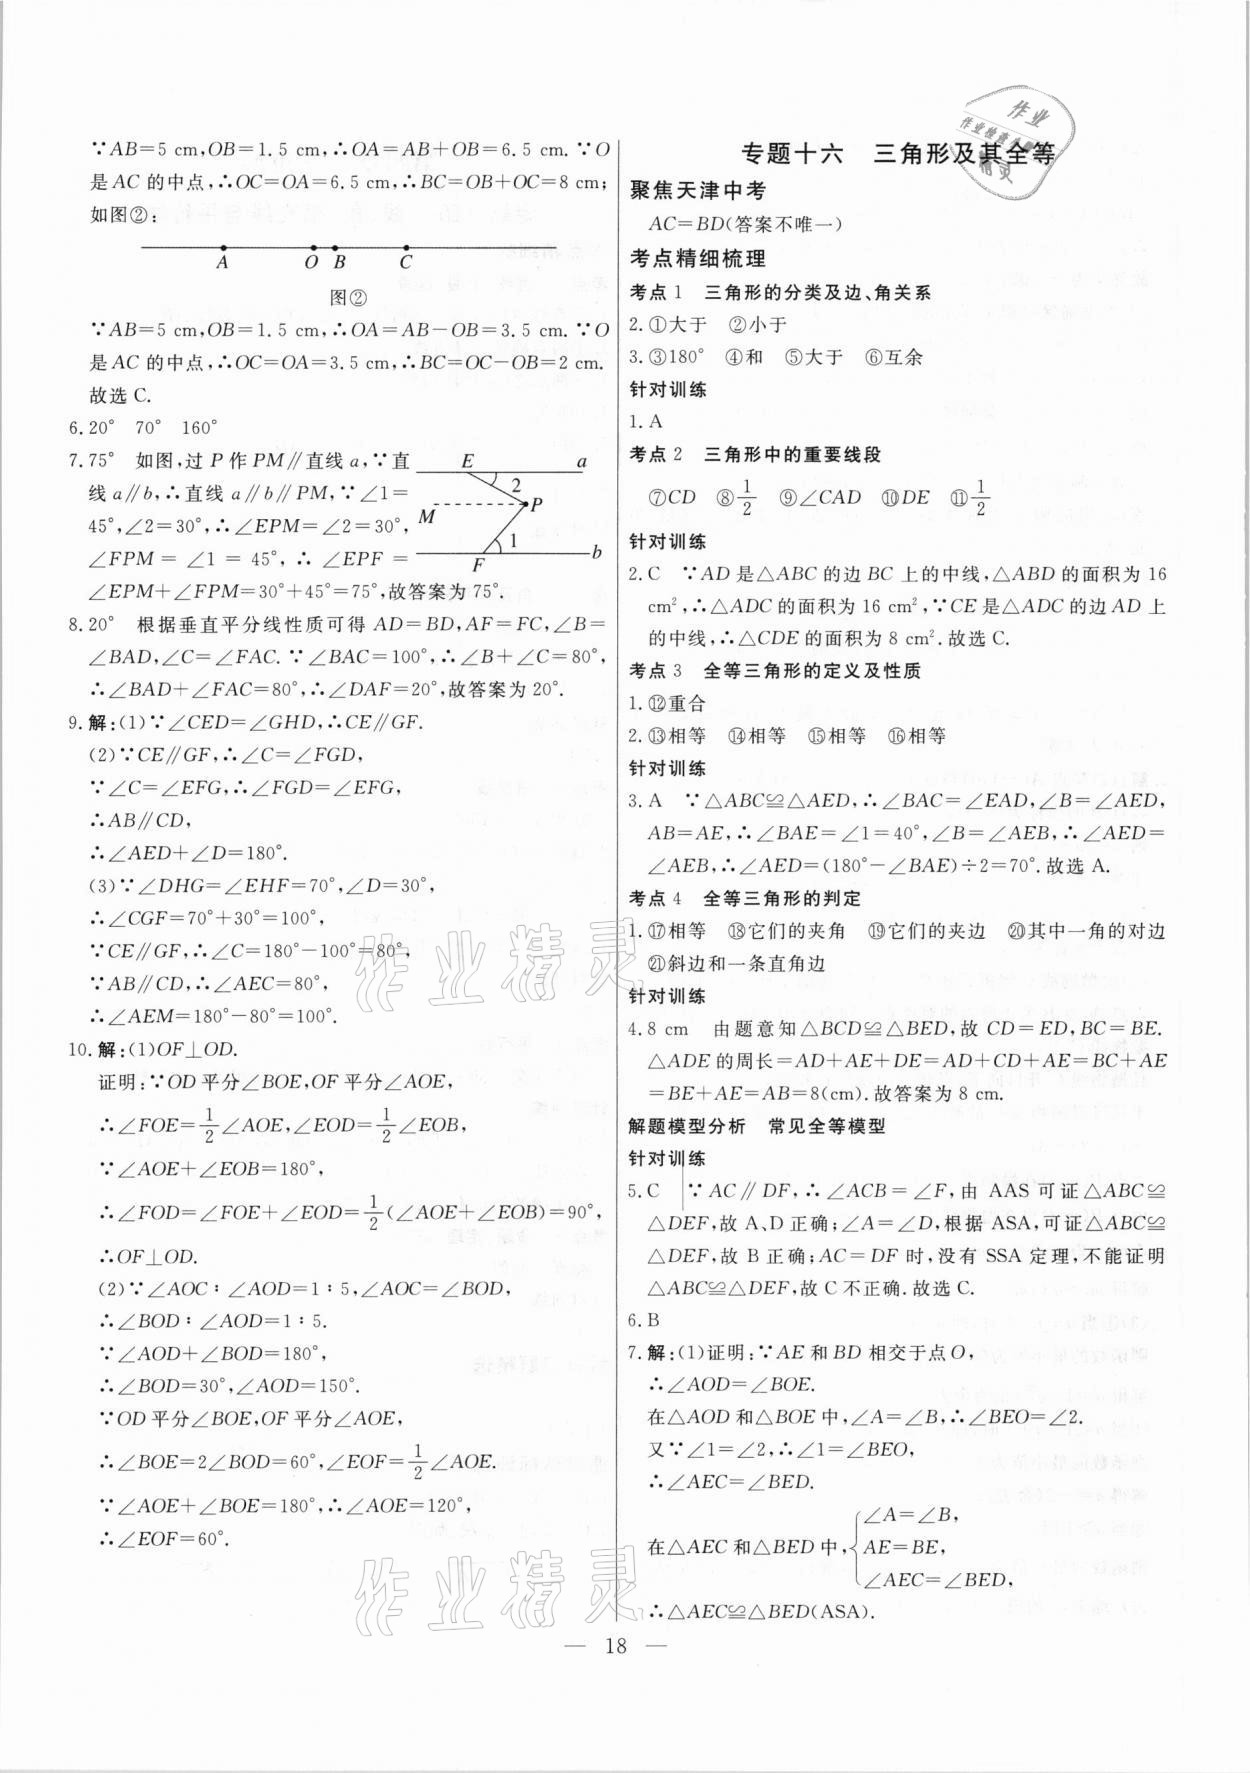 ∵AB=5 cm,OB=1.5 cm,∴OA=AB+OB=6.5 cm.∵O
是AC的中点,∴OC=OA=6.5 cm,∴BC=OB+OC=8 cm;
如图②:
A O B C
图②
∵AB=5 cm,OB=1.5 cm,∴OA=AB-OB=3.5 cm.∵O
是AC的中点,∴OC=OA=3.5 cm,∴BC=OC-OB=2 cm.
故选C.
6.20° 70° 160°
7.75° 如图,过P作PM∥直线a,∵直
线a∥b,∴直线a∥b∥PM,∵∠1=
45°,∠2=30°,∴∠EPM=∠2=30°,
∠FPM=∠1=45°,∴∠EPF=
∠EPM+∠FPM=30°+45°=75°,故答案为75°.
E a
2
M P
1
F b
8.20° 根据垂直平分线性质可得AD=BD,AF=FC,∠B=
∠BAD,∠C=∠FAC.∵∠BAC=100°,∴∠B+∠C=80°,
∴∠BAD+∠FAC=80°,∴∠DAF=20°,故答案为20°.
9.解:(1)∵∠CED=∠GHD,∴CE∥GF.
(2)∵CE∥GF,∴∠C=∠FGD,
∵∠C=∠EFG,∴∠FGD=∠EFG,
∴AB∥CD,
∴∠AED+∠D=180°.
(3)∵∠DHG=∠EHF=70°,∠D=30°,
∴∠CGF=70°+30°=100°,
∵CE∥GF,∴∠C=180°-100°=80°,
∵AB∥CD,∴∠AEC=80°,
∴∠AEM=180°-80°=100°.
10.解:(1)OF⊥OD.
证明:∵OD平分∠BOE,OF平分∠AOE,
∴∠FOE=1/2∠AOE,∠EOD=1/2∠EOB,
∵∠AOE+∠EOB=180°,
∴∠FOD=∠FOE+∠EOD=1/2(∠AOE+∠EOB)=90°,
∴OF⊥OD.
(2)∵∠AOC∶∠AOD=1∶5,∠AOC=∠BOD,
∴∠BOD∶∠AOD=1∶5.
∵∠AOD+∠BOD=180°,
∴∠BOD=30°,∠AOD=150°.
∵OD平分∠BOE,OF平分∠AOE,
∴∠BOE=2∠BOD=60°,∠EOF=1/2∠AOE.
∵∠AOE+∠BOE=180°,∴∠AOE=120°,
∴∠EOF=60°.
专题十六 三角形及其全等
聚焦天津中考
AC=BD(答案不唯一)
考点精细梳理
考点1 三角形的分类及边、角关系
2.①大于 ②小于
3.③180° ④和 ⑤大于 ⑥互余
针对训练
1.A
考点2 三角形中的重要线段
⑦CD ⑧1/2 ⑨∠CAD ⑩DE ⑪1/2
针对训练
2.C ∵AD是△ABC的边BC上的中线,△ABD的面积为16
cm²,∴△ADC的面积为16 cm²,∵CE是△ADC的边AD上
的中线,∴△CDE的面积为8 cm².故选C.
考点3 全等三角形的定义及性质
1.⑫重合
2.⑬相等 ⑭相等 ⑮相等 ⑯相等
针对训练
3.A ∵△ABC≌△AED,∴∠BAC=∠EAD,∠B=∠AED,
AB=AE,∴∠BAE=∠1=40°,∠B=∠AEB,∴∠AED=
∠AEB,∴∠AED=(180°-∠BAE)÷2=70°.故选A.
考点4 全等三角形的判定
1.⑰相等 ⑱它们的夹角 ⑲它们的夹边 ⑳其中一角的对边
㉑斜边和一条直角边
针对训练
4.8 cm 由题意知△BCD≌△BED,故CD=ED,BC=BE.
△ADE的周长=AD+AE+DE=AD+CD+AE=BC+AE
=BE+AE=AB=8(cm).故答案为8 cm.
解题模型分析 常见全等模型
针对训练
5.C ∵AC∥DF,∴∠ACB=∠F,由AAS可证△ABC≌
△DEF,故A、D正确;∠A=∠D,根据ASA,可证△ABC≌
△DEF,故B正确;AC=DF时,没有SSA定理,不能证明
△ABC≌△DEF,故C不正确.故选C.
6.B
7.解:(1)证明:∵AE和BD相交于点O,
∴∠AOD=∠BOE.
在△AOD和△BOE中,∠A=∠B,∴∠BEO=∠2.
又∵∠1=∠2,∴∠1=∠BEO,
∴∠AEC=∠BED.
∠A=∠B,
在△AEC和△BED中,{AE=BE,
∠AEC=∠BED,
∴△AEC≌△BED(ASA).
— 18 —
作业精灵
作业精灵
作业
作业检查小
精灵